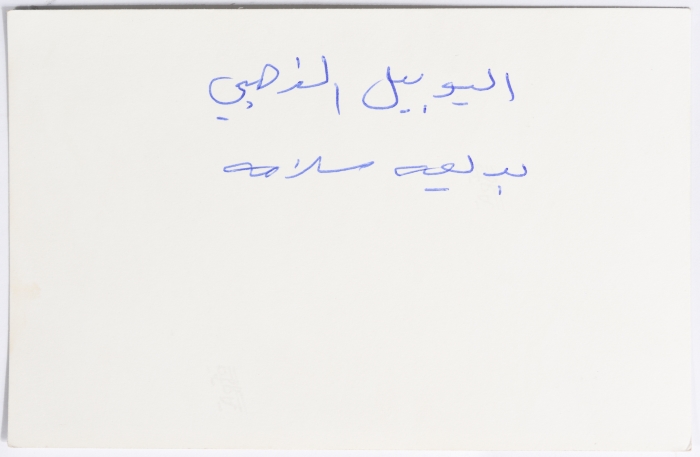 اليوبيل الذهبي
بديعه سلامه